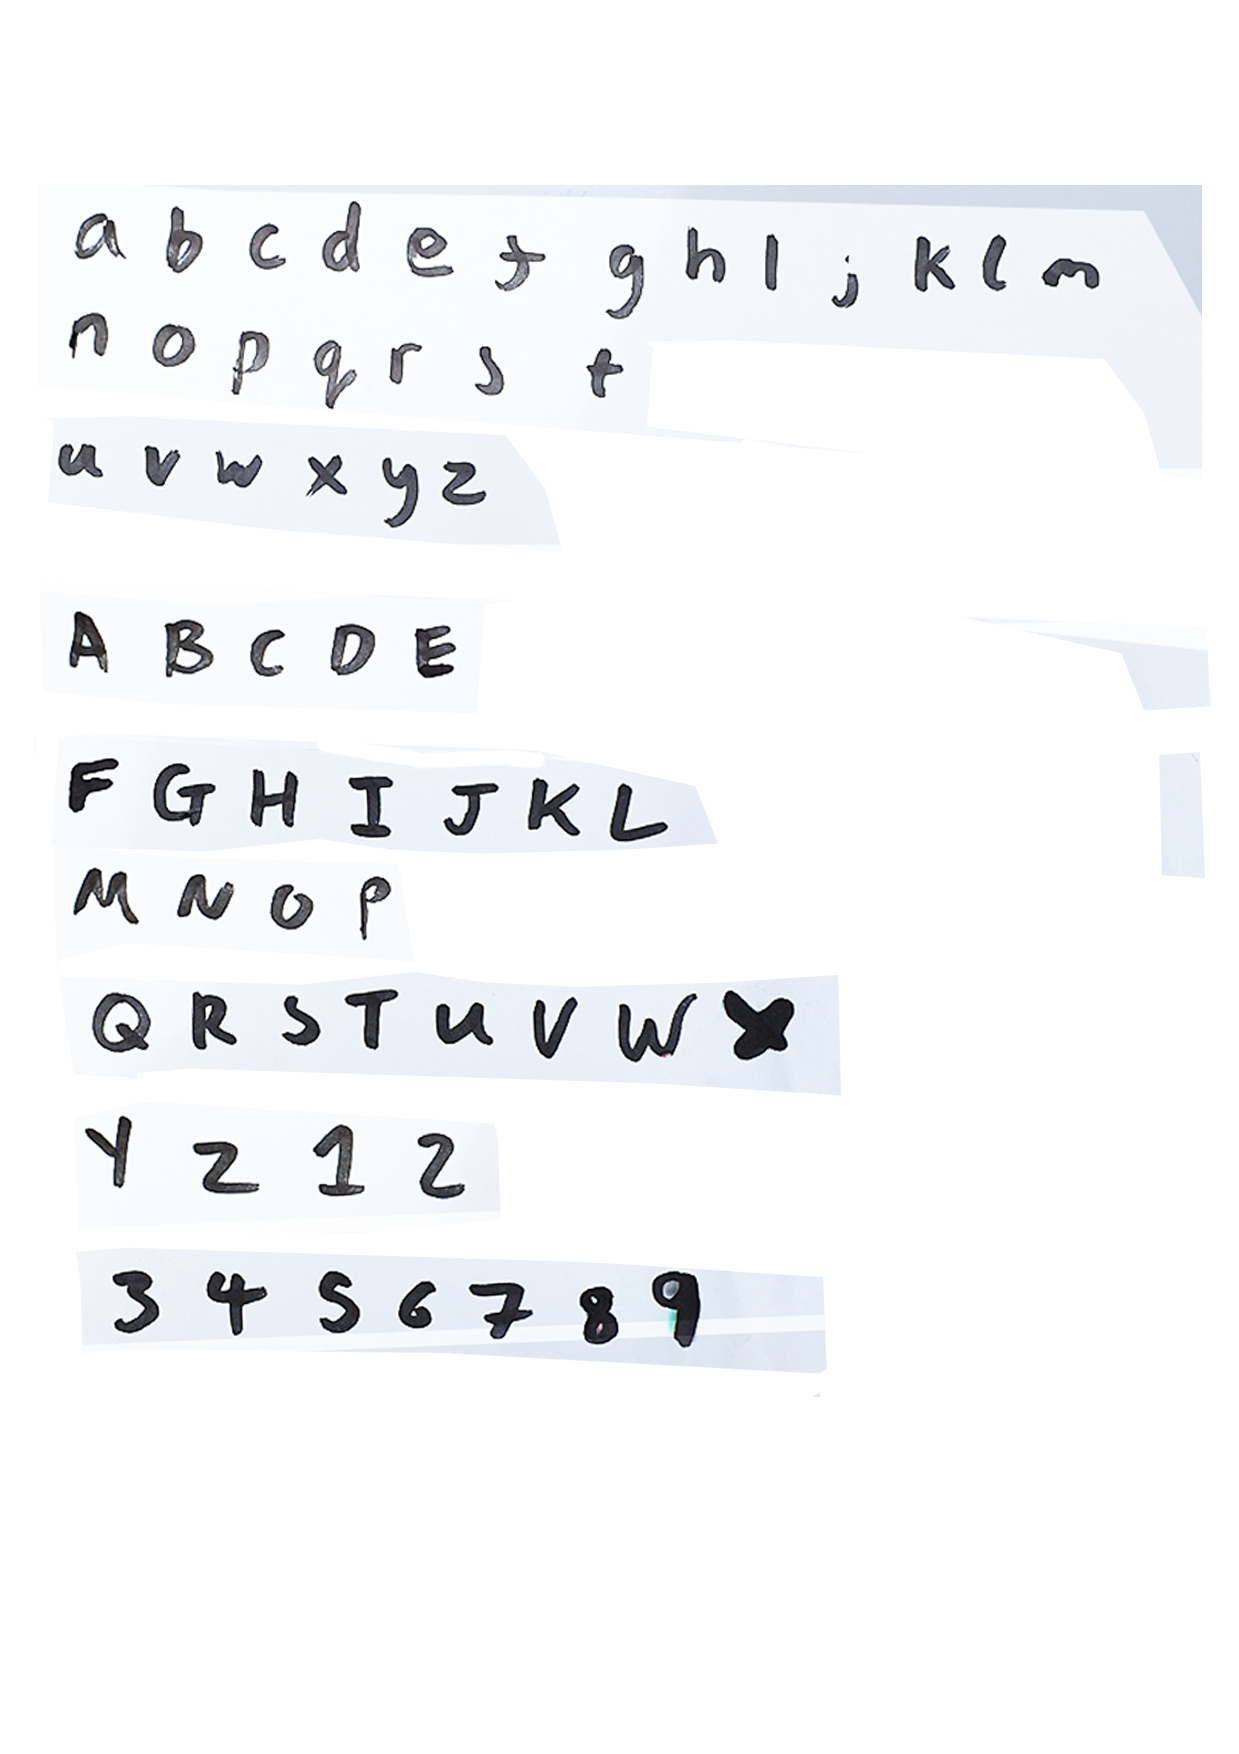 a b c d e f g h l j k l m
n o p q r s t
u v w x y z
A B C D E
F G H I J K L
M N O P
Q R S T U V W X
Y Z 1 2
3 4 5 6 7 8 9